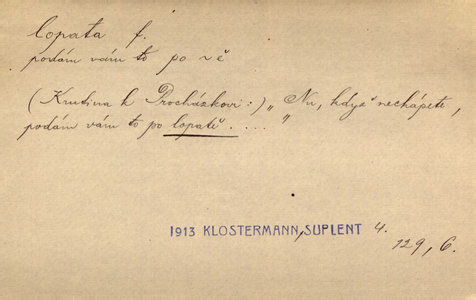 lopata f.
podám vám to po -tě
(Krutina k Procházkovi:) „Nu, když nechápete,
podám vám to po lopatě....“
1913 KLOSTERMANN, SUPLENT 4.
129, 6.